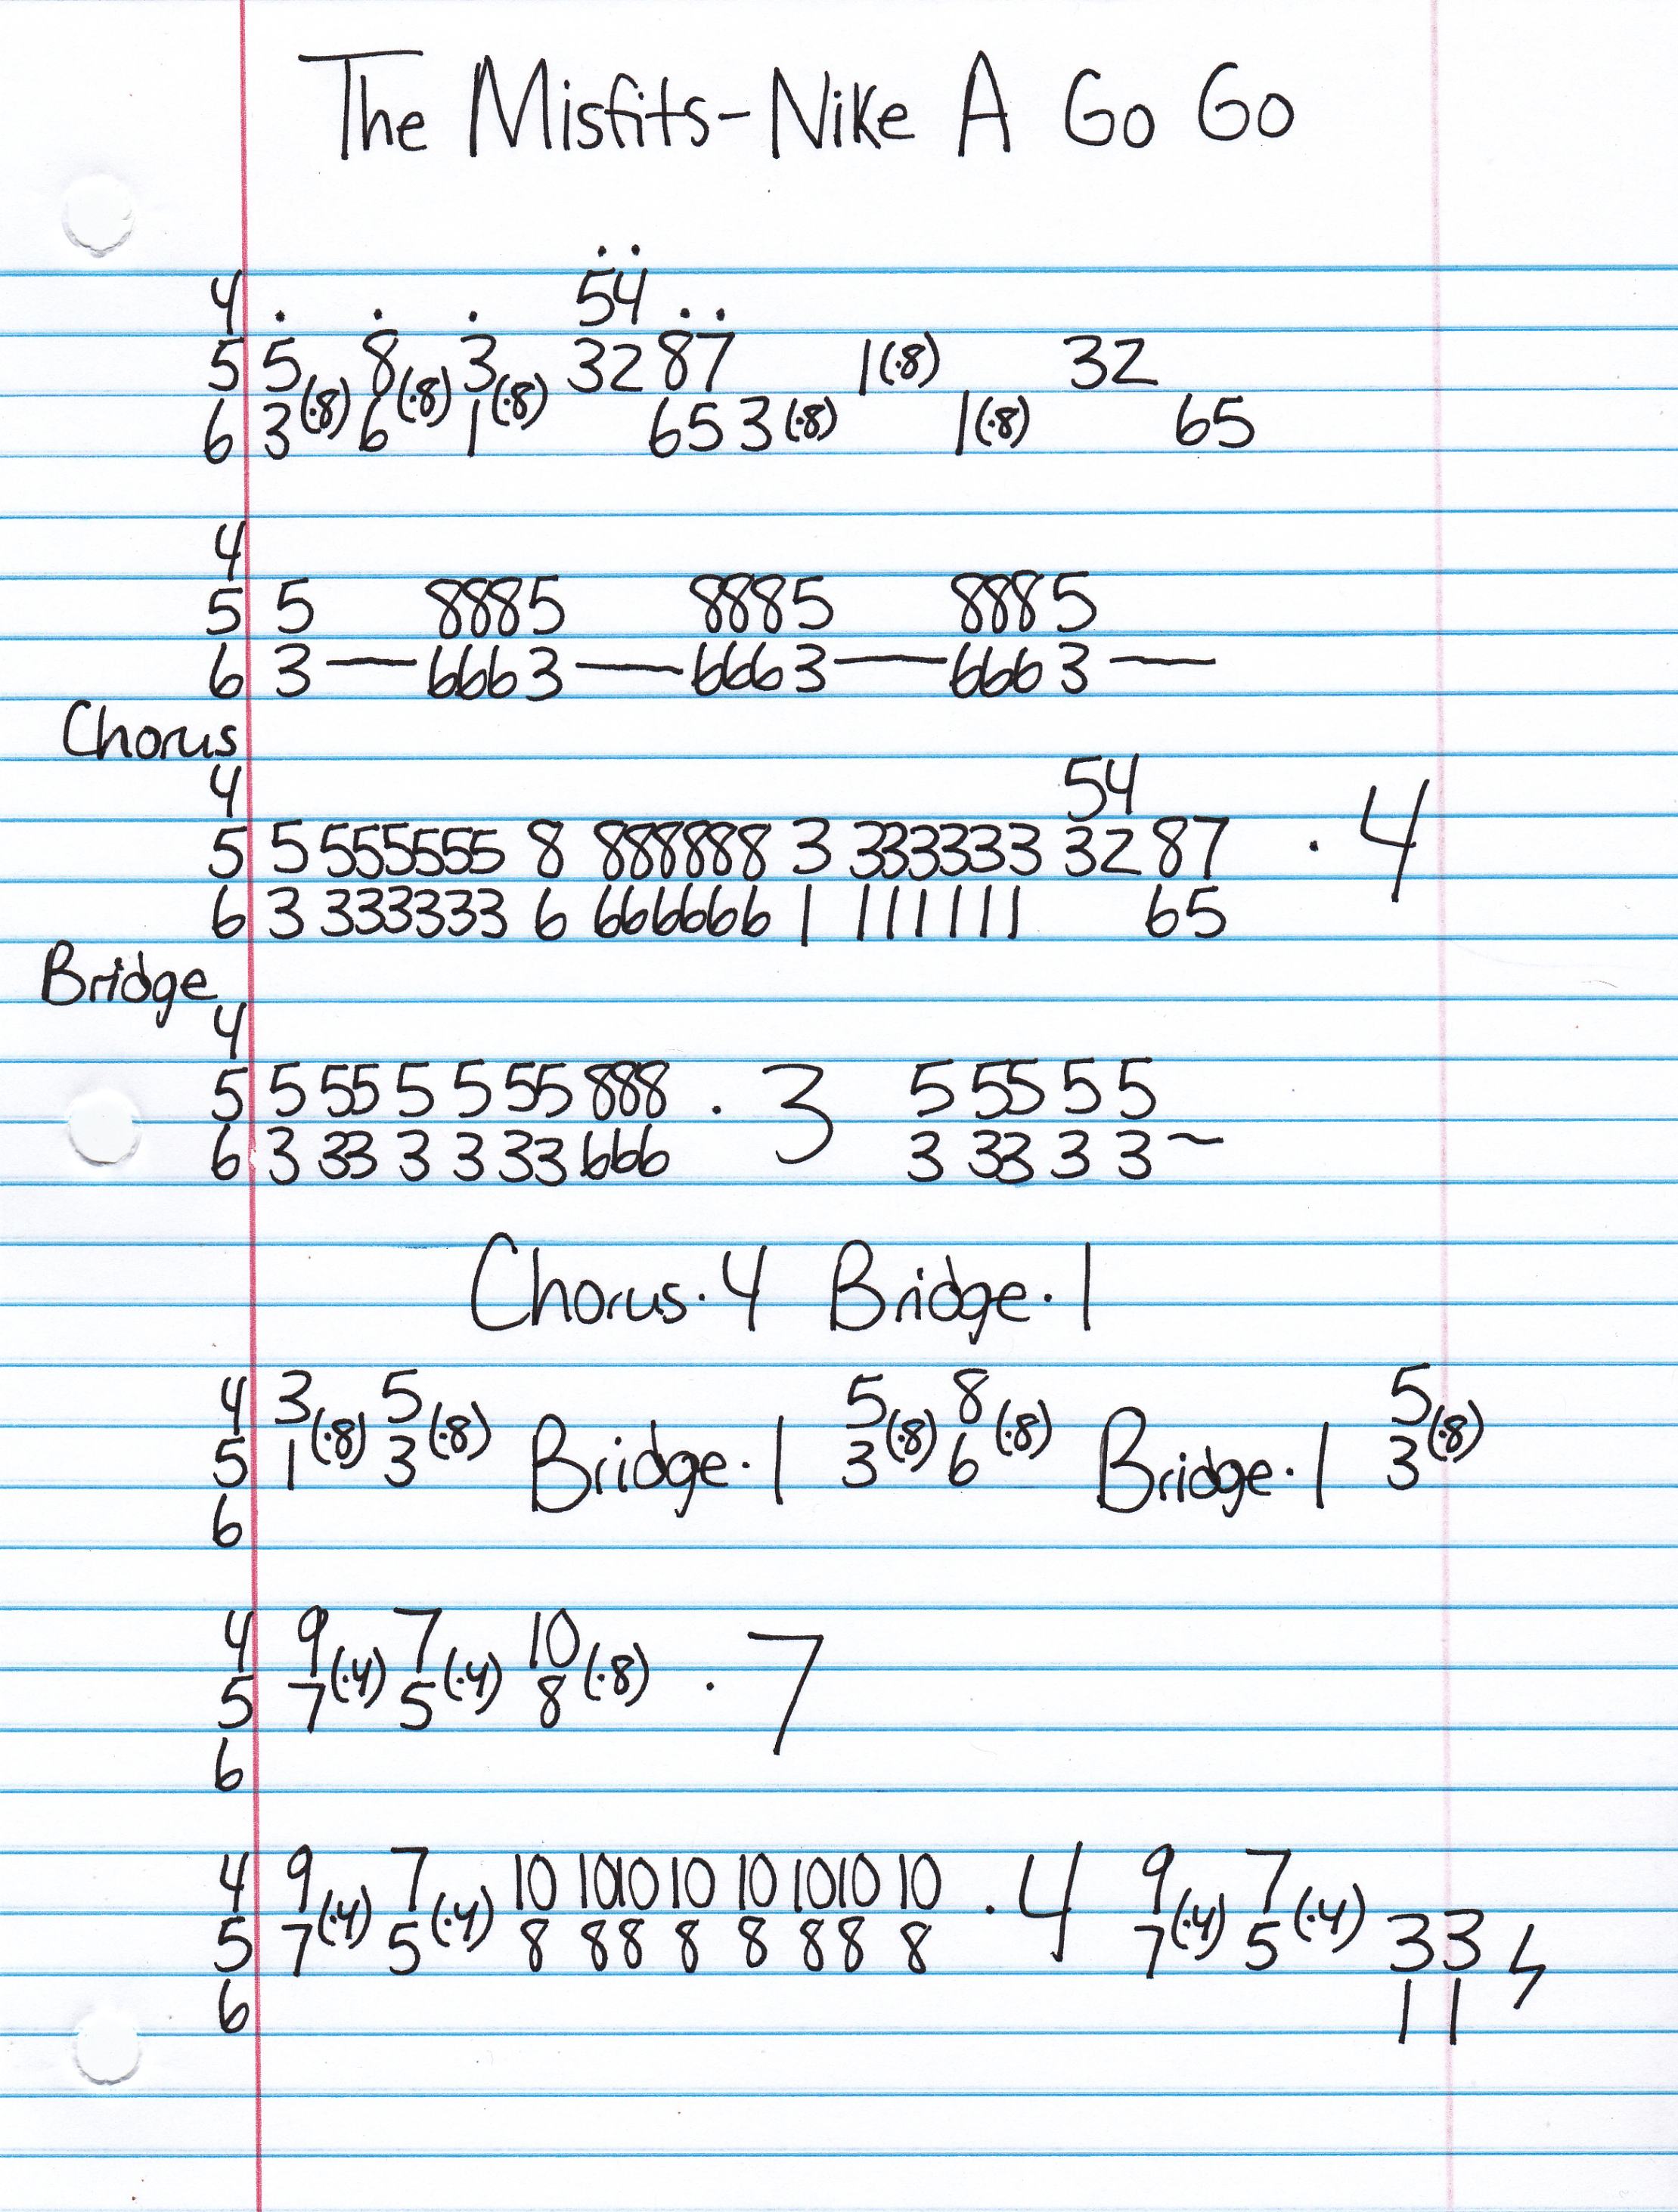 The Misfits-Nike A Go Go
. . 54
4 . . . . .
5 5(·8) 8(·8) 3(·8) 32 87 1(·8) 32
6 3 6 1 65 3(·8) 1(·8) 65
4
5 5 8885 8885 8885
6 3 — 6663 — 6663 — 6663 —
Chorus
4 54
5 5 555555 8 888888 3 333333 32 87 · 4
6 3 333333 6 666666 1 111111 65
Bridge
4
5 5 55 5 5 55 888 · 3 5 55 5 5
6 3 33 3 3 33 666 3 33 3 3~
Chorus·4 Bridge·1
4 3(·8) 5(·8) 5(·8) 8(·8) 5(·8)
5 1 3 Bridge·1 3 6 Bridge·1 3
6
4 9(·4) 7(·4) 10(·8) · 7
5 7 5 8
6
4 9(·4) 7(·4) 10 1010 10 10 1010 10 · 4 9(·4) 7(·4)
5 7 5 8 88 8 8 88 8 7 5 33
6 11